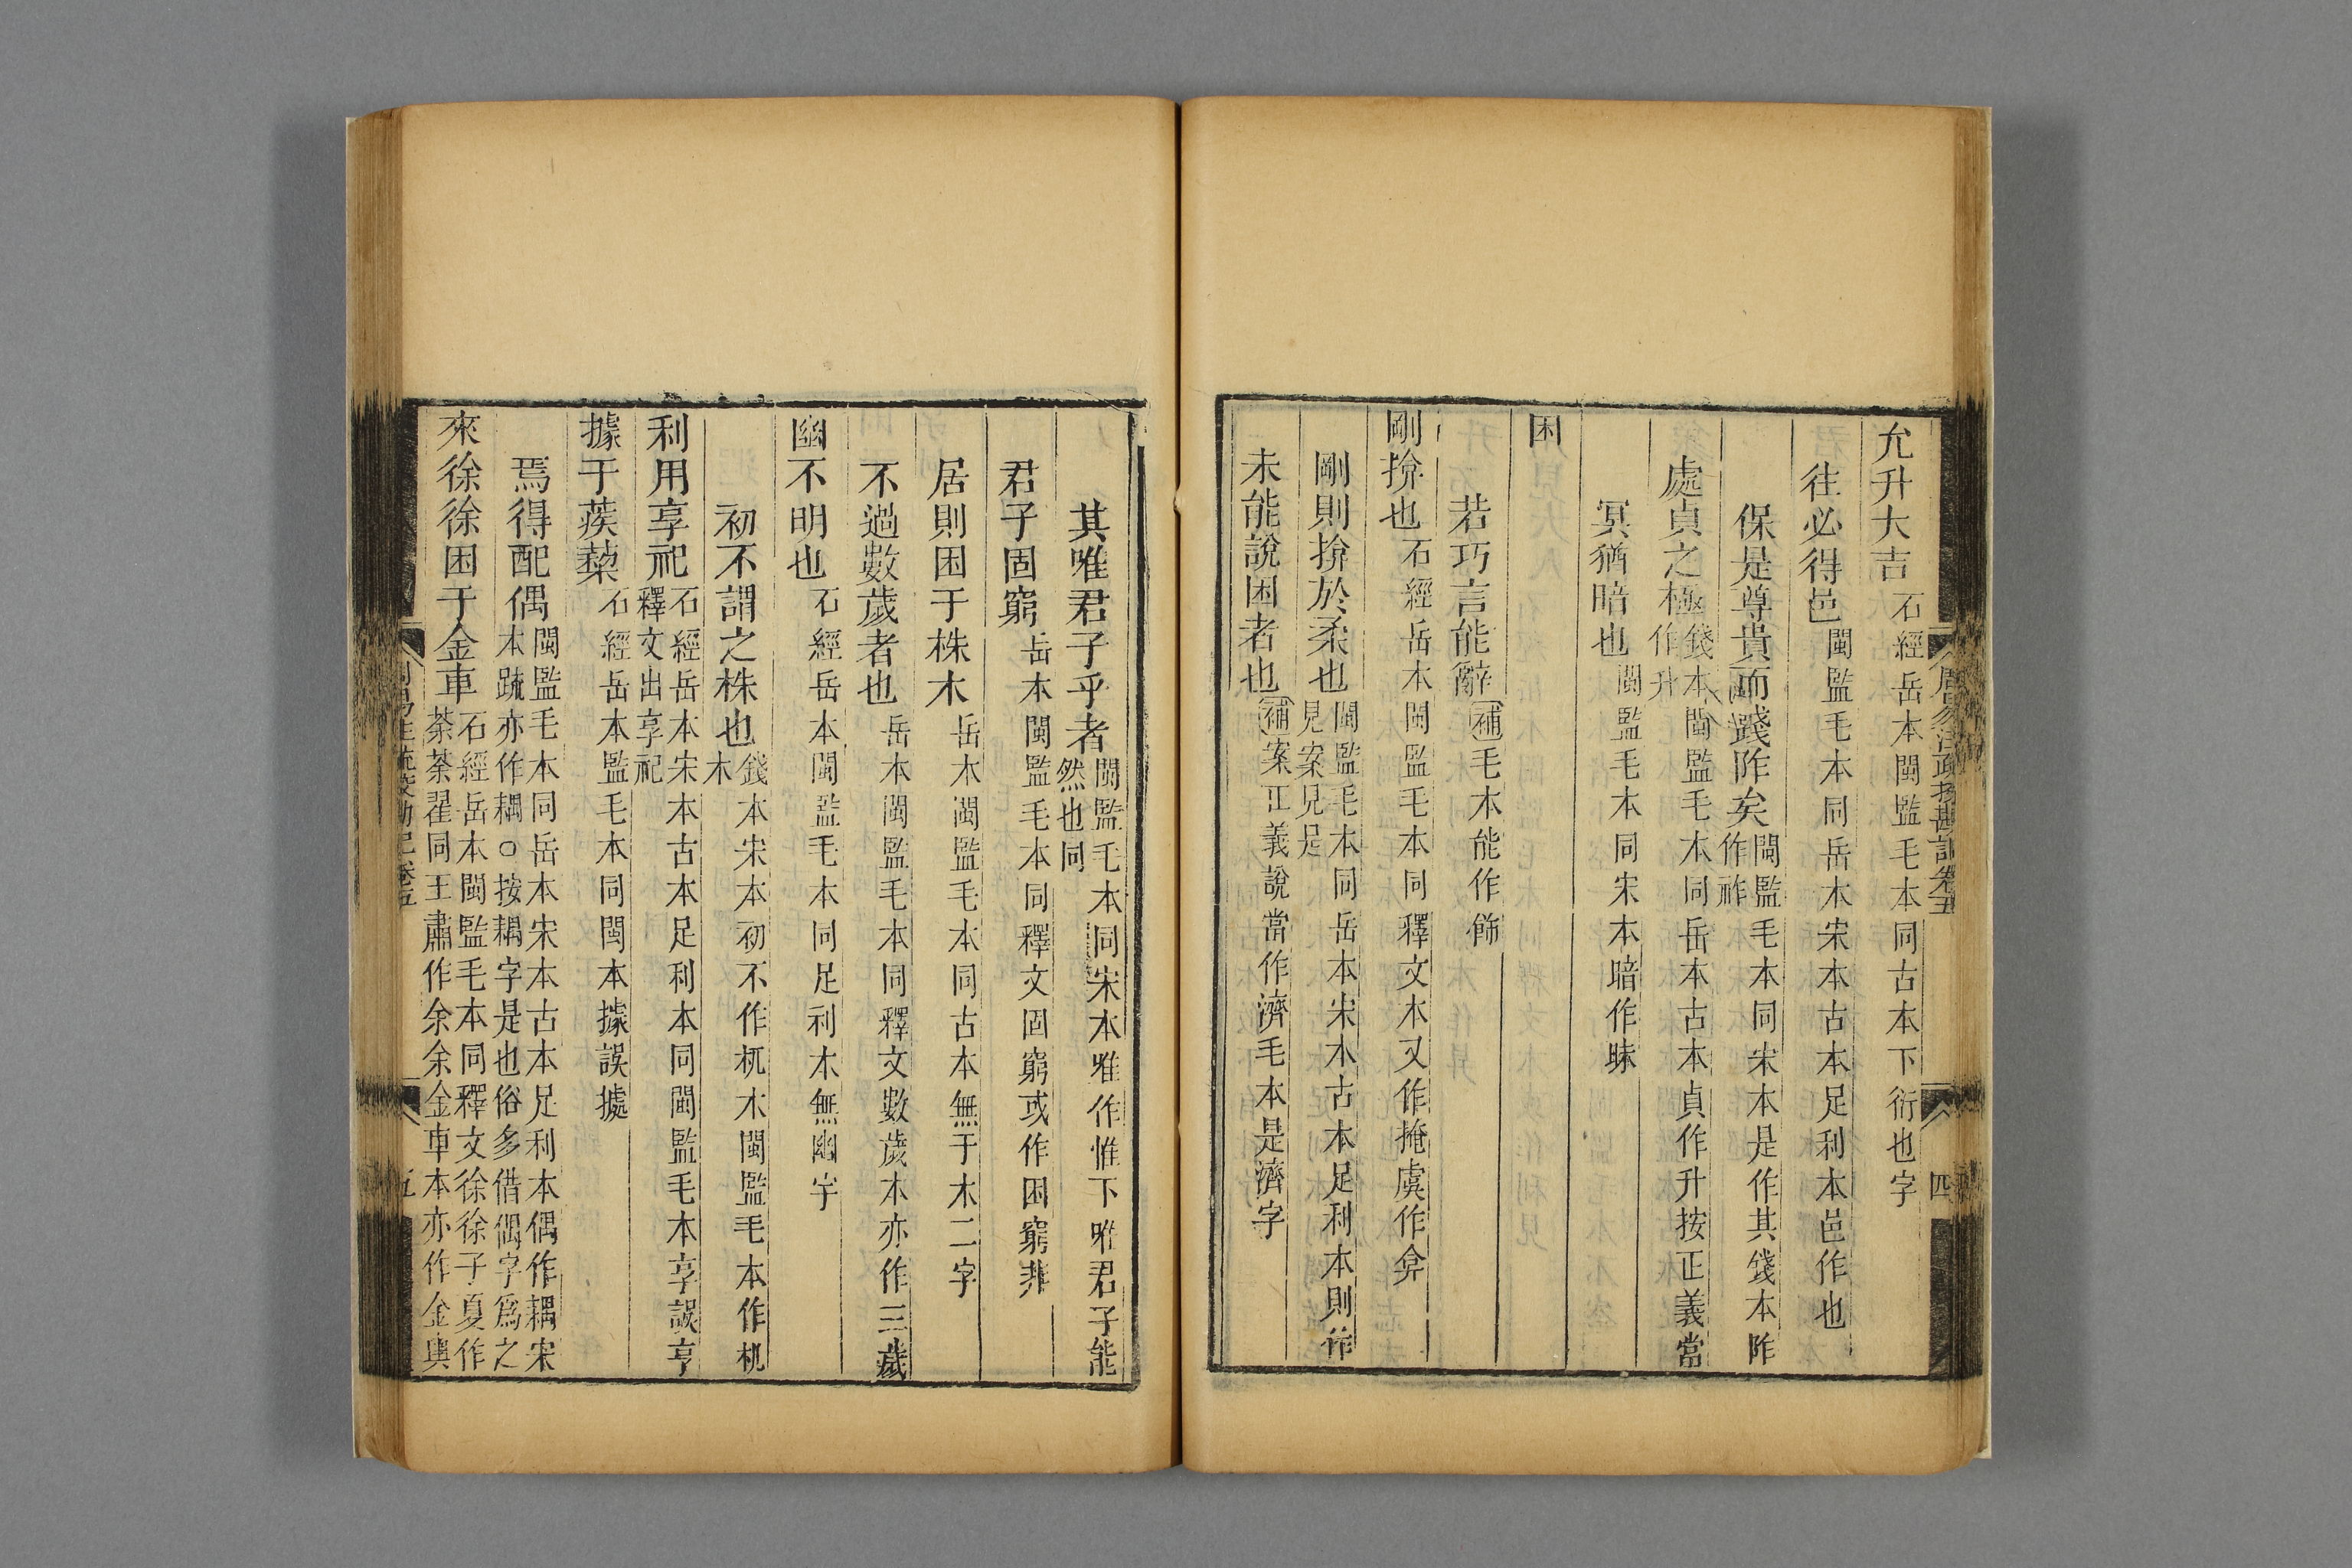 允升大吉石經岳本閩監毛本同古本下衍也字
往必得邑閩監毛本同岳本宋本古本足利本邑作也
保是尊貴而踐阼矣閩監毛本同宋本是作其錢本阼作祚
處貞之極錢本閩監毛本同岳本古本貞作升按正義當作升
冥猶暗也閩監毛本同宋本暗作昧
困
若巧言能辭補毛本能作飾
剛揜也石經岳本閩監毛本同釋文本又作掩虞作弇
剛則揜於柔也閩監毛本同岳本宋本古本足利本則作見案見是
未能說困者也補案正義說當作濟毛本是濟字
周易注疏挍勘記卷五
四
其唯君子乎者閩監毛本同宋本唯作惟下唯君子能然也同
君子固窮岳本閩監毛本同釋文固窮或作困窮非
居則困于株木岳本閩監毛本同古本無于木二字
不過數歲者也岳本閩監毛本同釋文數歲本亦作三歲
幽不明也石經岳本閩監毛本同足利本無幽字
初不謂之株也錢本宋本初不作杌木閩監毛本作机木
利用享祀石經岳本宋本古本足利本同閩監毛本享誤亨釋文出享祀
據于蒺蔾石經岳本監毛本同閩本據誤㨿
焉得配偶閩監毛本同岳本宋本古本足利本偶作耦宋本疏亦作耦○按耦字是也俗多借偶字爲之
來徐徐困于金車石經岳本閩監毛本同釋文徐徐子夏作荼荼翟同王肅作余余金車本亦作金輿
周易注疏挍勘記卷五
五